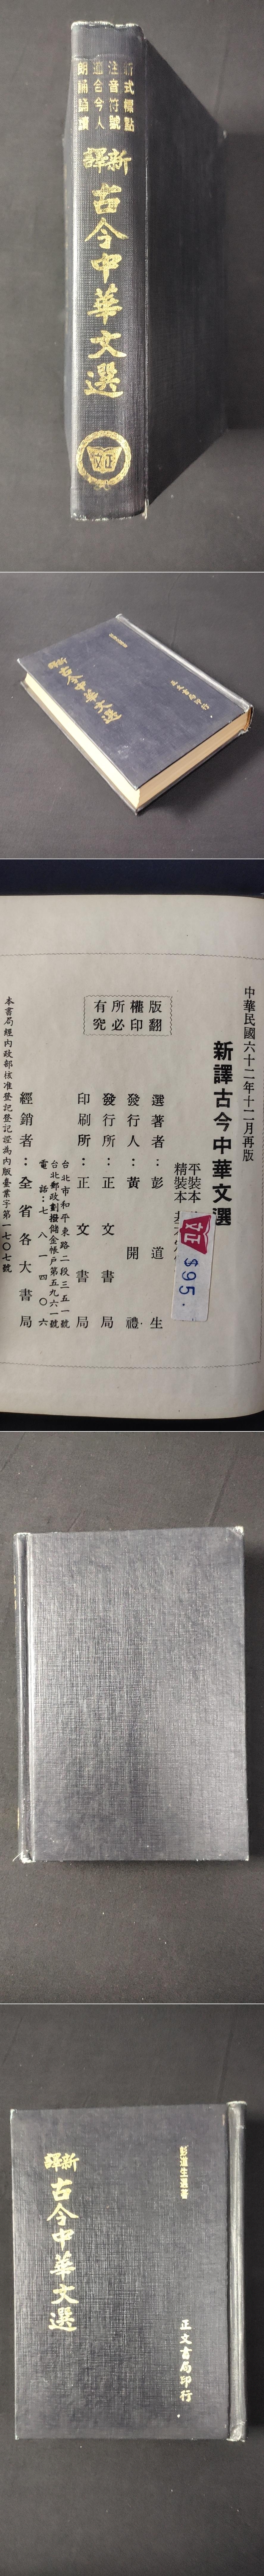 新式標點
注音符號
適合今人
朗誦誦讀
新譯
古今中華文選
正文
新譯
古今中華文選
正文書局印行
中華民國六十二年十一月再版
新譯古今中華文選
平裝本
精裝本
正文
$95.
選著者：彭道生
發行人：黃開禮
發行所：正文書局
台北市和平東路二段三五一號
台北郵政劃撥儲金帳戶第五九六一號
電話：七八一四〇六
印刷所：正文書局
經銷者：全省各大書局
本書局經內政部核准登記登記證為內版臺業字第一七〇七號
版權所有
翻印必究
彭道生選著
新譯
古今中華文選
正文書局印行